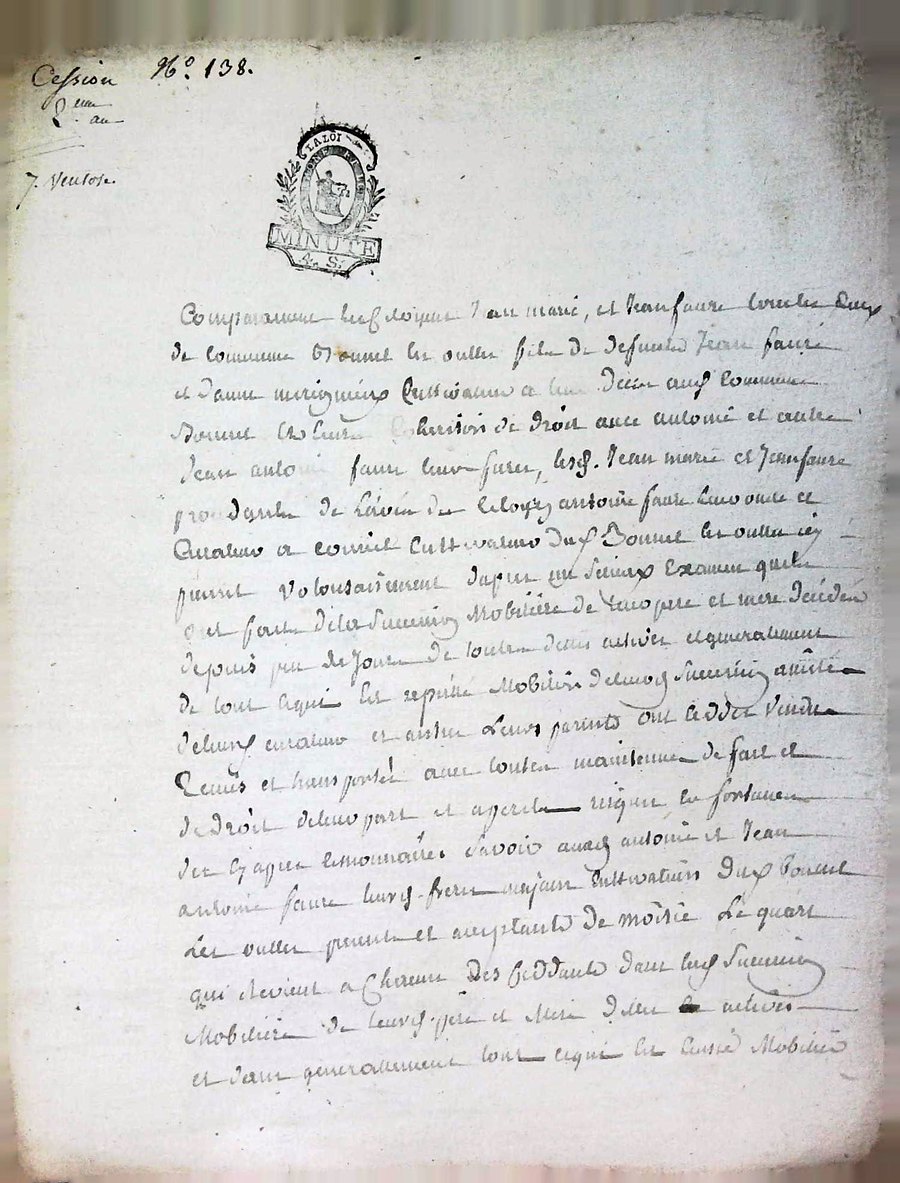 Cession N.º 138.
2.eme an
7. Ventose
LA LOI
MINUTE
4. S.
Comparaissent les Citoyens Jean marie, et Jean faure tous les deux
de commune Bonnet les oulles fils de defunts Jean faure
et Jeanne cultivateurs a commune
Bonnet de droit avec antoine et autre
Jean antoine faure leurs freres, lesd. Jean marie et Jean faure
procedants de l'avis du citoyen antoine faure leur oncle et
Curateur cultivateur dud. Bonnet les oulles icy
present volontairement dapres un serieux Examen quils
ont fait de la Succession Mobiliere de leurs pere et mere decedes
depuis peu de Jours de toutes dettes actives et generalement
de tout ce qui est reputé Mobilier de leurd. Succession
de leurd. curateur et autres Leurs parents ont cedder Vendu
Remis et transporté avec toutes maintenues de fait et
de droit de leur part et a perils risques et fortunes
des cy apres cessionnaires Savoir auxd. antoine et Jean
antoine faure leursd. freres majeurs cultivateurs dud. Bonnet
Les oulles presents et acceptants de moitié Le quart
qui Revient a Chacun Des Ceddants dans lesd. Succession
Mobiliere de leursd. père et Mere dettes actives
et dans generalement tout ce qui est Mobilier